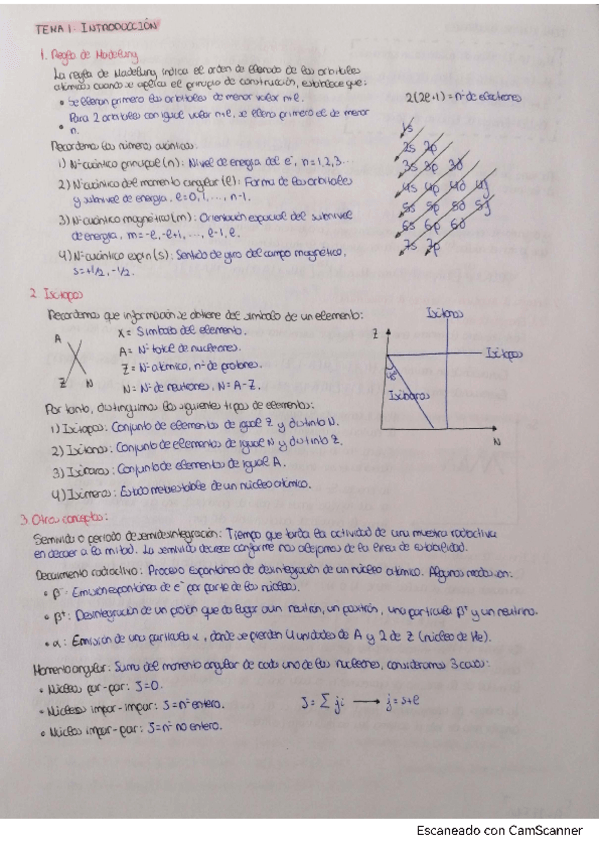 TEMA 1: INTRODUCCIÓN
1. Regla de Madelung
La regla de Madelung indica el orden de llenado de los orbitales
atómicos cuando se aplica el principio de construcción, establece que:
• Se llenan primero los orbitales de menor valor n+l.
Para 2 orbitales con igual valor n+l, se llena primero el de menor
• n.
2(2l+1) = nº de electrones
1s
2s 2p
3s 3p 3d
4s 4p 4d 4f
5s 5p 5d 5f
6s 6p 6d
7s 7p
Recordemos los números cuánticos:
1) Nº cuántico principal (n): Nivel de energía del e⁻, n=1,2,3...
2) Nº cuántico del momento angular (l): Forma de los orbitales
y subnivel de energía, l=0,1,..., n-1.
3) Nº cuántico magnético (m): Orientación espacial del subnivel
de energía, m=-l,-l+1, ..., l-1, l.
4) Nº cuántico espín (s): Sentido de giro del campo magnético,
s=+1/2, -1/2.
2. Isótopos
Recordemos que información se obtiene del símbolo de un elemento:
A
X
Z N
X = Símbolo del elemento.
A = Nº total de nucleones.
Z = Nº atómico, nº de protones.
N = Nº de neutrones, N = A-Z.
Z
Isótonos
Isótopos
45º
Isóbaros
N
Por tanto, distinguimos los siguientes tipos de elementos:
1) Isótopos: Conjunto de elementos de igual Z y distinto N.
2) Isótonos: Conjunto de elementos de igual N y distinto Z.
3) Isóbaros: Conjunto de elementos de igual A.
4) Isómeros: Estado metaestable de un núcleo atómico.
3. Otros conceptos:
Semivida o periodo de semidesintegración: Tiempo que tarda la actividad de una muestra radiactiva
en decaer a la mitad. La semivida decrece conforme nos alejamos de la línea de estabilidad.
Decaimiento radiactivo: Proceso espontáneo de desintegración de un núcleo atómico. Algunos modos son:
• β⁻: Emisión espontánea de e⁻ por parte de los núcleos.
• β⁺: Desintegración de un protón que da lugar a un neutrón, un positrón, una partícula β⁺ y un neutrino.
• α: Emisión de una partícula α, donde se pierden 4 unidades de A y 2 de Z (núcleo de He).
Momento angular: Suma del momento angular de cada uno de los nucleones, consideramos 3 casos:
• Núcleos par-par: J=0.
• Núcleos impar-impar: J=nº entero.
• Núcleos impar-par: J=nº no entero.
J = ∑ ji ⟶ j = s+l
Escaneado con CamScanner